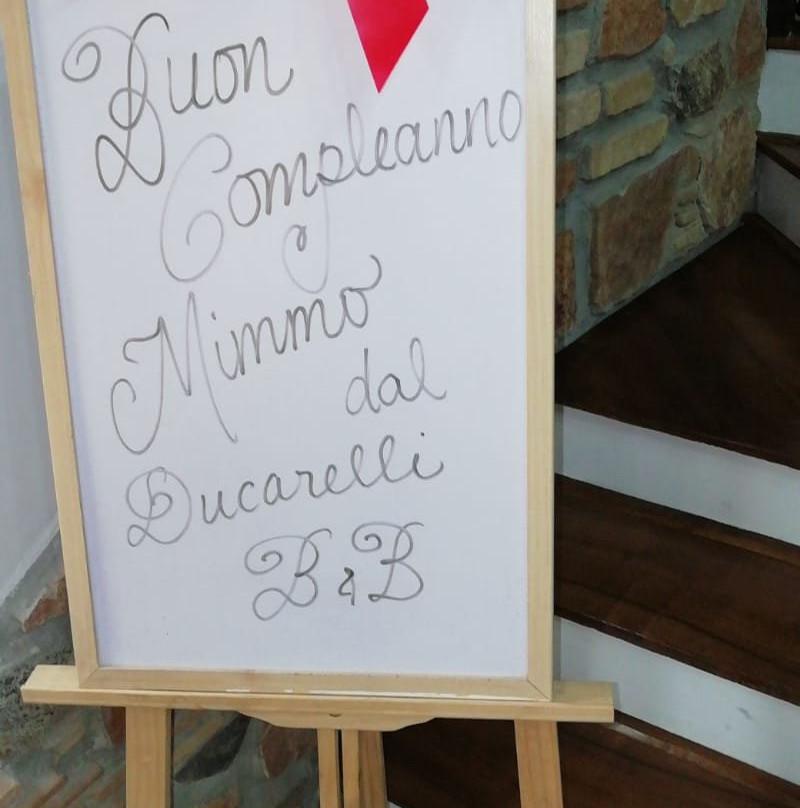 Buon
Compleanno
Mimmo
dal
Ducarelli
B&B